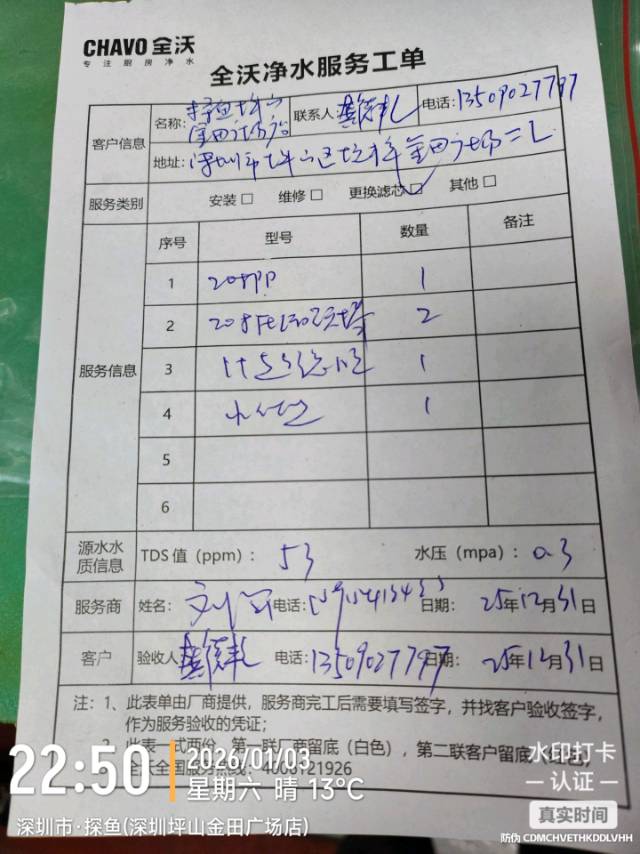 CHAVO 全沃
专注厨房净水
全沃净水服务工单
客户信息
名称: 探鱼坪山金田广场店
联系人: 龚德礼
电话: 13509027797
地址: 深圳市坪山区坑梓金田广场二L
服务类别 安装□ 维修□ 更换滤芯☑ 其他□
服务信息
序号 型号 数量 备注
1 20寸PP 1
2 2
3 1
4 1
5
6
源水水质信息 TDS 值（ppm）: 53 水压（mpa）: 0.3
服务商 姓名: 刘 电话: 日期: 25年12月31日
客户 验收人 龚德礼 电话: 13509027797 日期: 25年12月31日
注：1、此表单由厂商提供，服务商完工后需要填写签字，并找客户验收签字，
作为服务验收的凭证；
2、此表一式两份，第一联厂商留底（白色），第二联客户留底
全沃全国服务热线：4008121926
22:50
2026/01/03
星期六 晴 13℃
深圳市·探鱼(深圳坪山金田广场店)
水印打卡
认证
真实时间
防伪 CDMCHVETHKDDLVHH